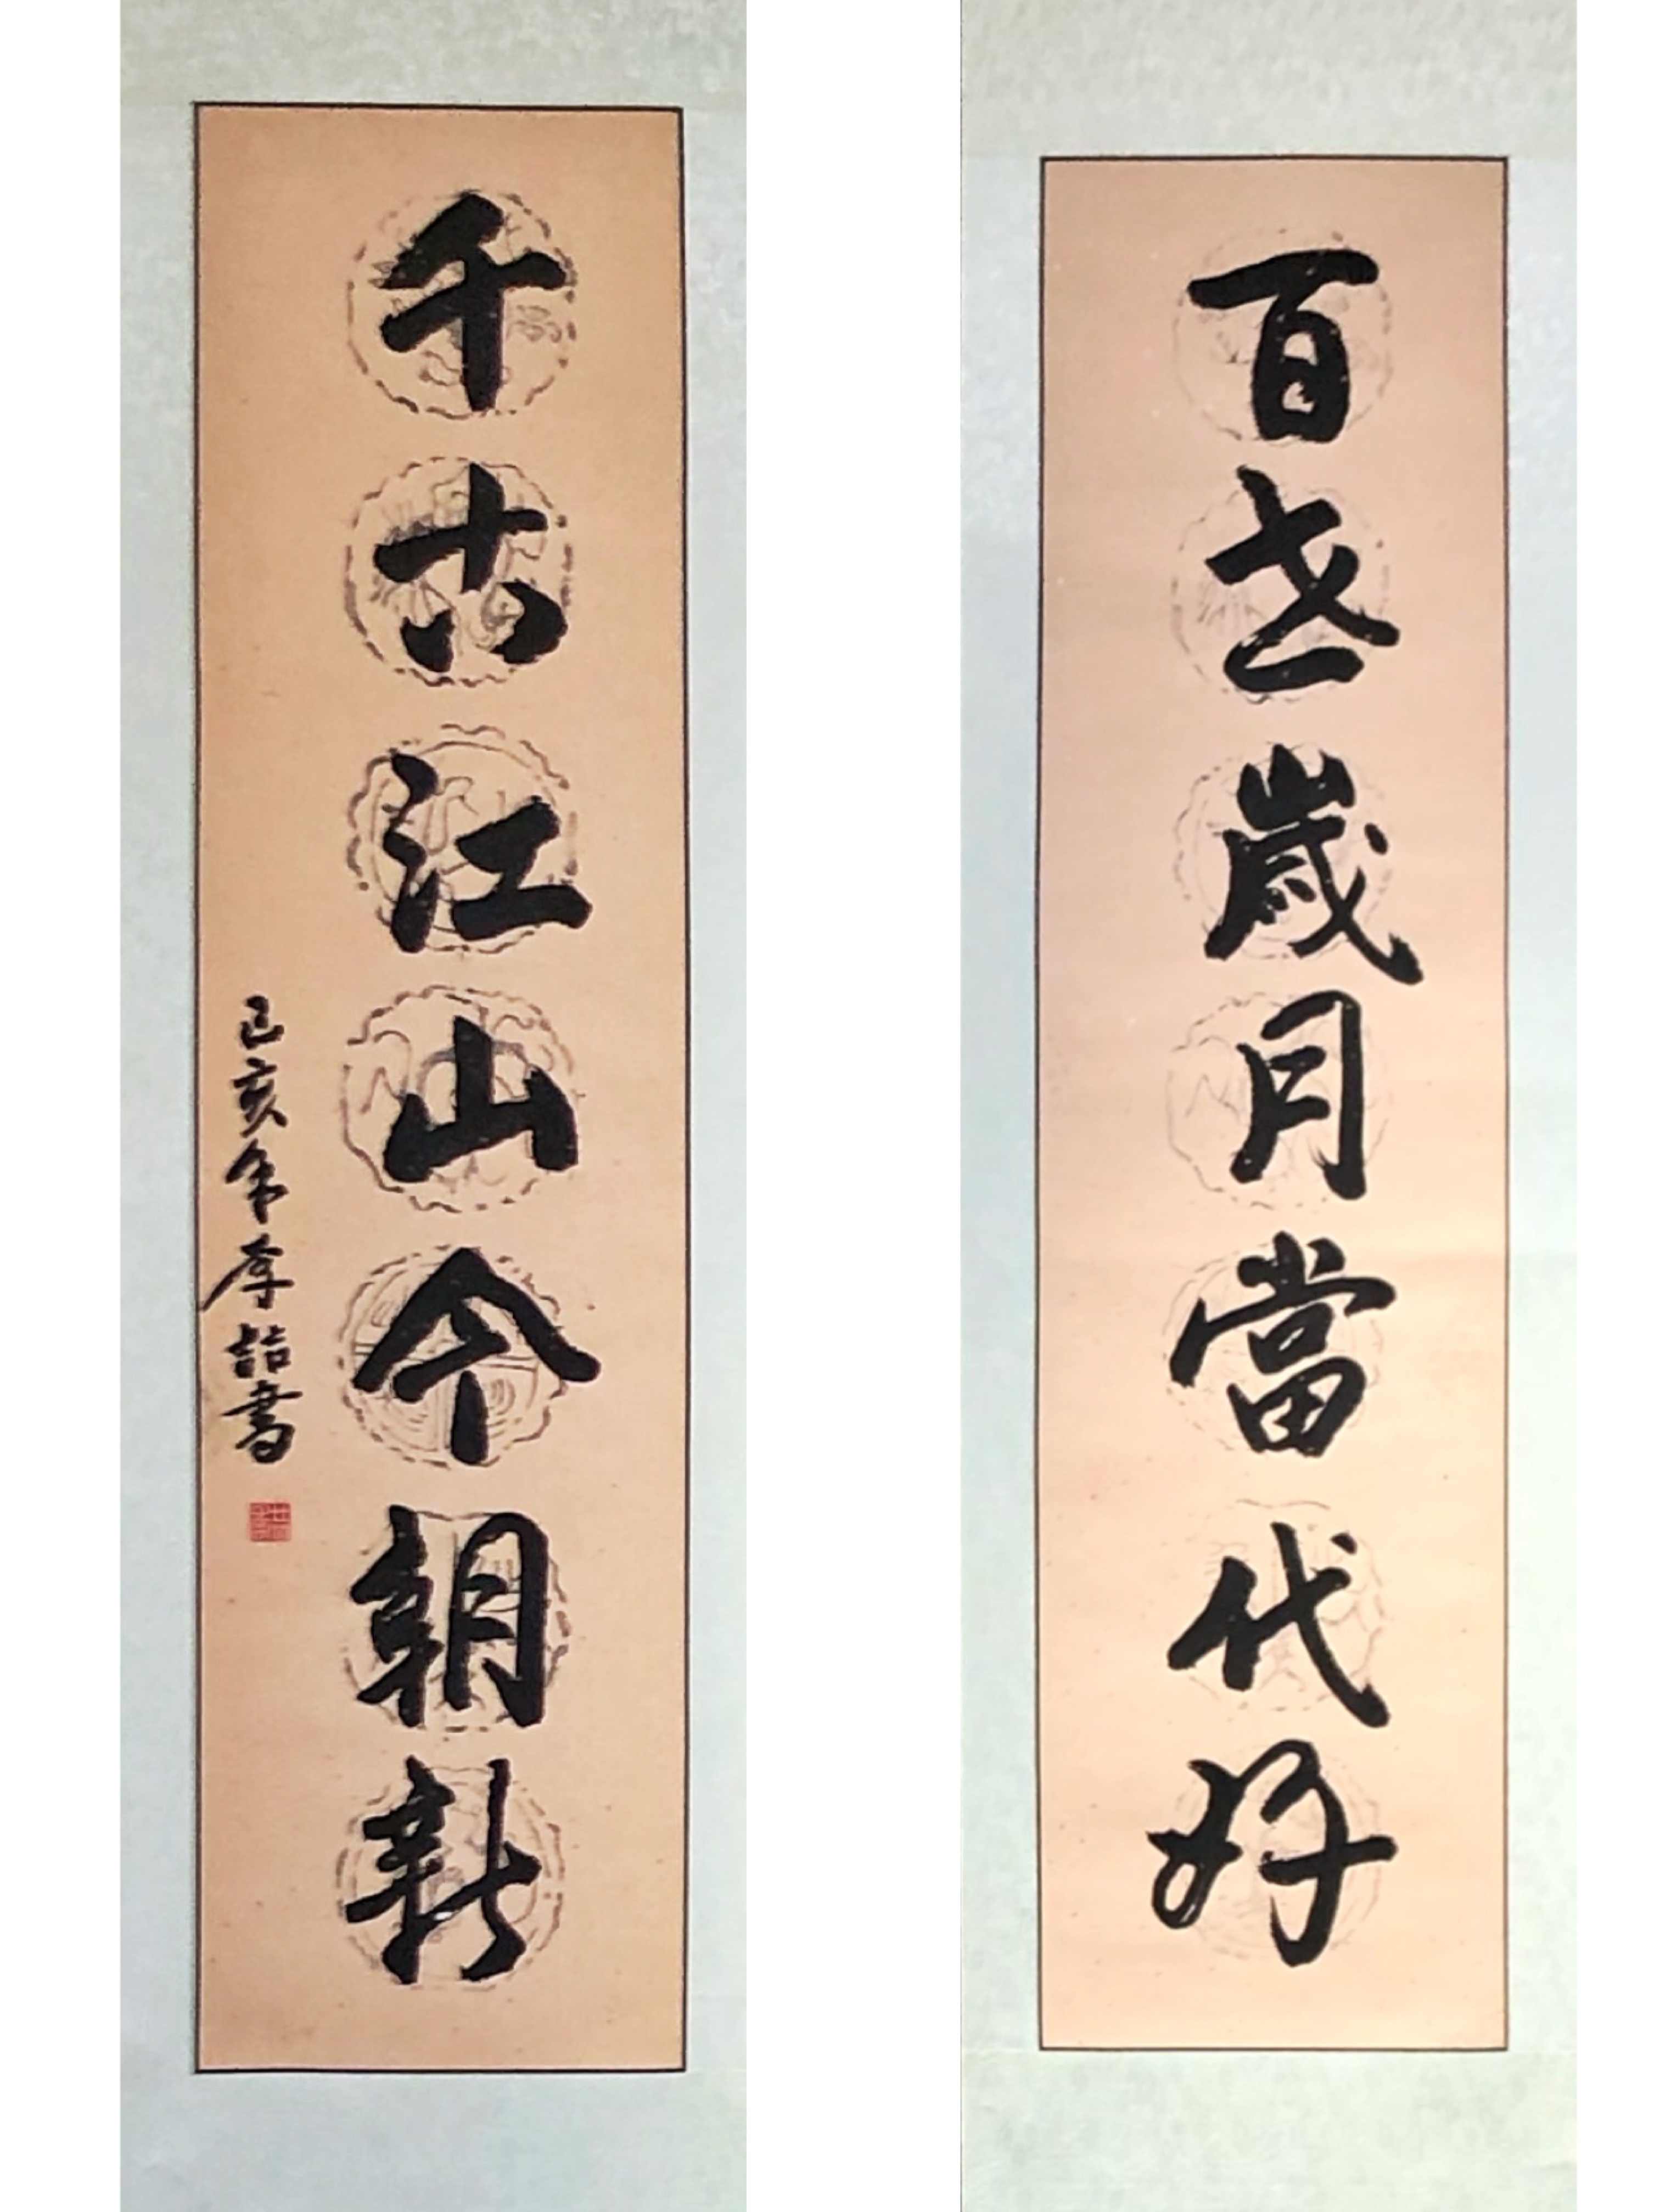 百世歲月當代好
千古江山今朝新
己亥年李喆書